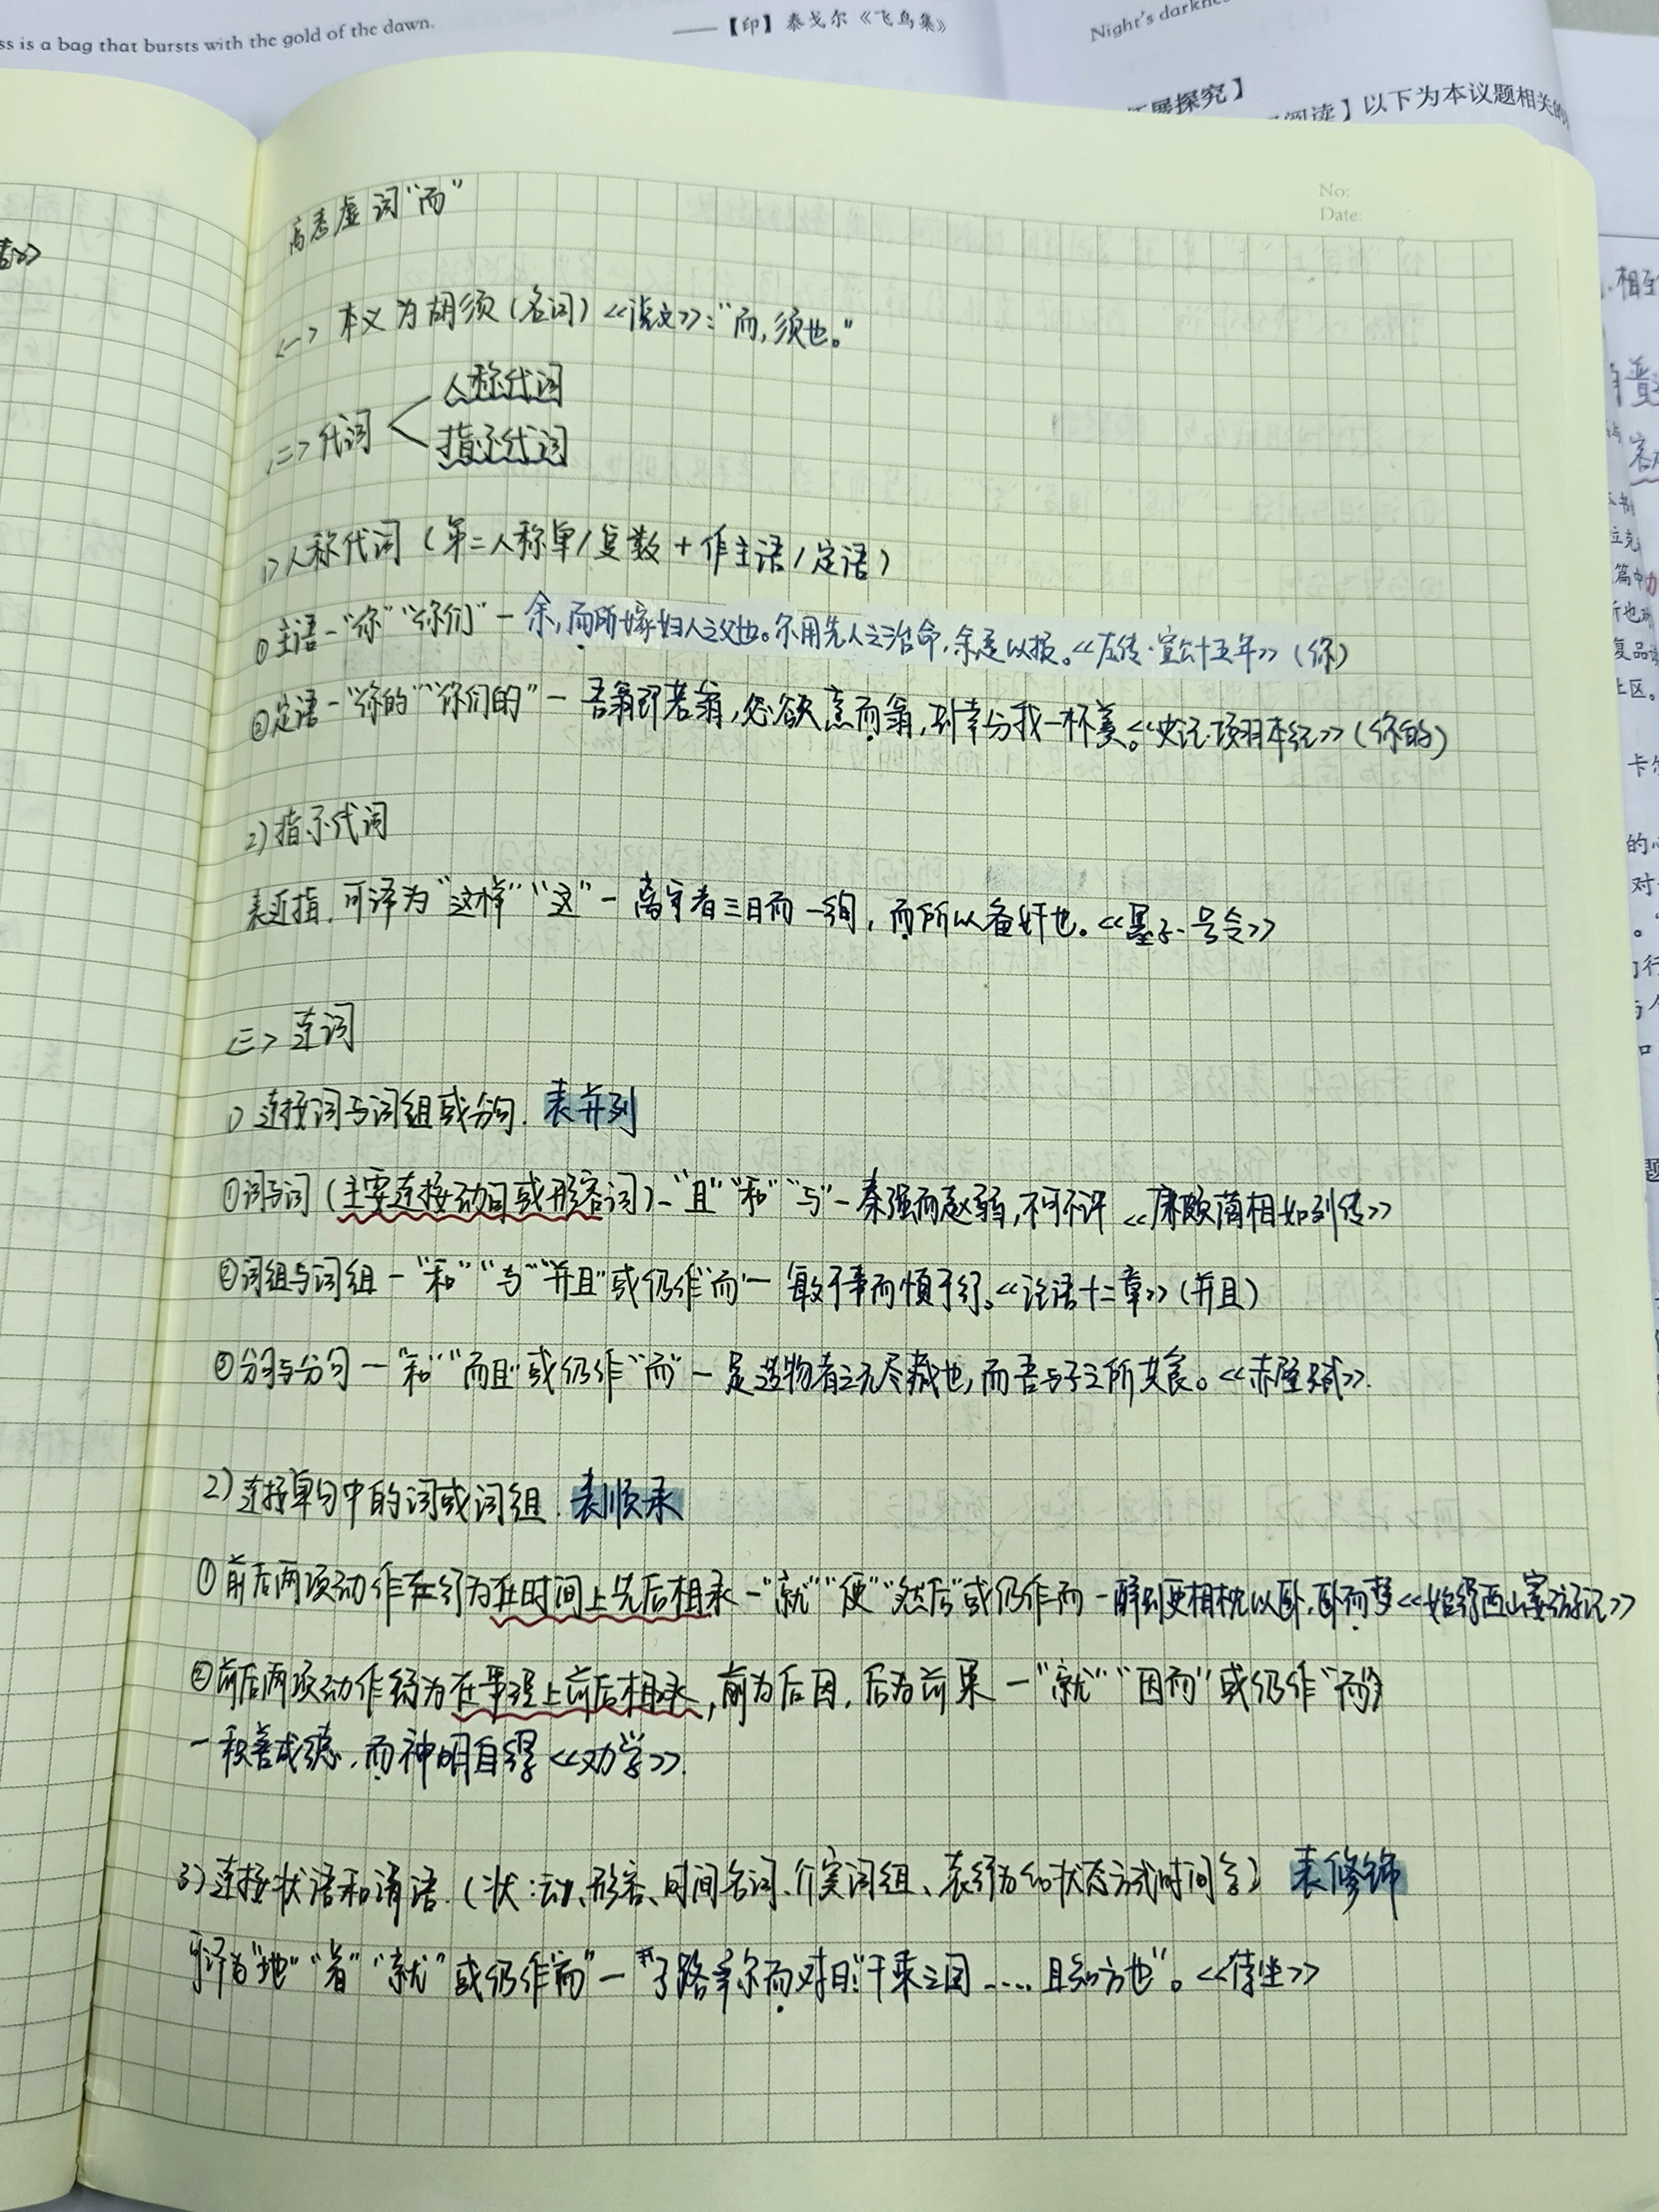 ss is a bag that bursts with the gold of the dawn.
——【印】泰戈尔《飞鸟集》
Night's darkne
展探究】
阅读】以下为本议题相关的
No:
Date:
高考虚词“而”
<一> 本义为胡须(名词)<<说文>>:“而,须也。”
<二> 代词
人称代词
指示代词
1>人称代词(第二人称单/复数+作主语/定语)
①主语-“你”“你们”-余,而所嫁妇人之父也。尔用先人之治命,余是以报。<<左传·宣公十五年>>(你)
②定语-“你的”“你们的”-吾翁即若翁,必欲烹而翁,则幸分我一杯羹。<<史记·项羽本纪>>(你的)
2)指示代词
表近指,可译为“这样”“这”-离守者三日而一徇,而所以备奸也。<<墨子·号令>>
<三> 连词
1)连接词与词组或分句.表并列
①词与词(主要连接动词或形容词)-“且”“和”“与”-秦强而赵弱,不可不许<<廉颇蔺相如列传>>
②词组与词组-“和”“与”“并且”或仍作“而”-敏于事而慎于行。<<论语十二章>>(并且)
③分句与分句-“和”“而且”或仍作“而”-是造物者之无尽藏也,而吾与子之所共食。<<赤壁赋>>.
2)连接单句中的词或词组.表顺承
①前后两项动作在行为在时间上先后相承-“就”“便”“然后”或仍作而-醉则更相枕以卧,卧而梦<<始得西山宴游记>>
②前后两项动作行为在事理上前后相承,前为后因,后为前果-“就”“因而”或仍作“而”
-积善成德,而神明自得<<劝学>>.
3)连接状语和谓语.(状:动、形容、时间名词、介宾词组、表行为的状态方式时间等)表修饰
可译为“地”“着”“就”或仍作“而”-“子路率尔而对曰:“千乘之国……且知方也”。<<侍坐>>